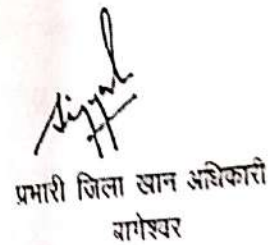 प्रभारी जिला खान अधिकारी
बागेश्वर